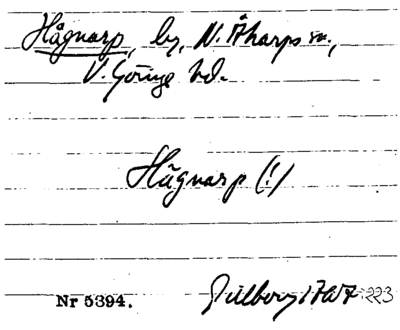 Hågnarp, by, N. Åkarps sn,
V. Göinge hd.
Hügnarp (!)
Nr 5394. Gillberg 1767:223